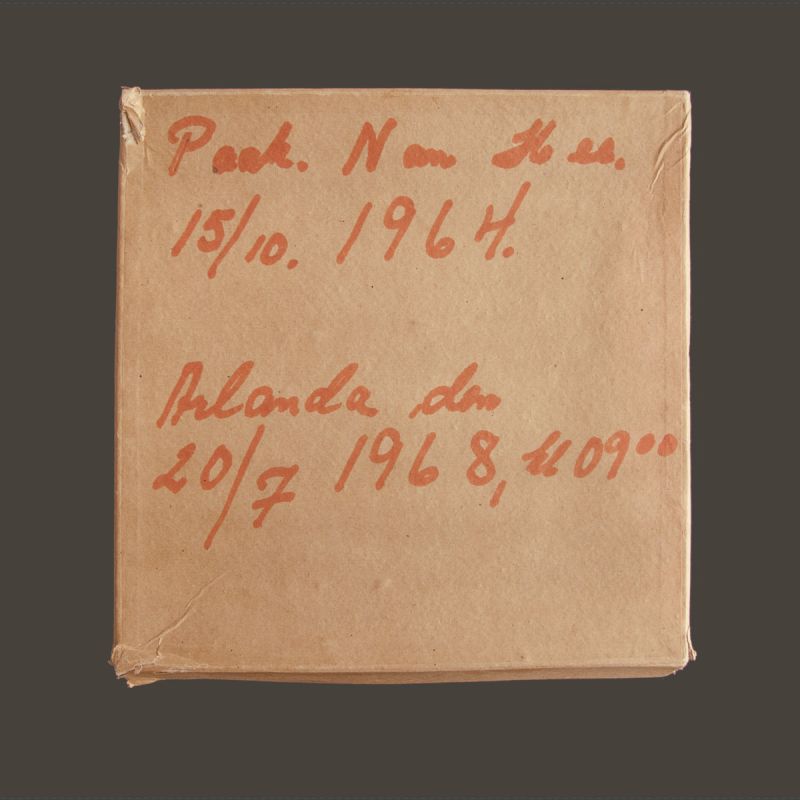 Paak. Nam Hes.
15/10. 1964.
Arlanda den
20/7 1968, kl 09⁰⁰